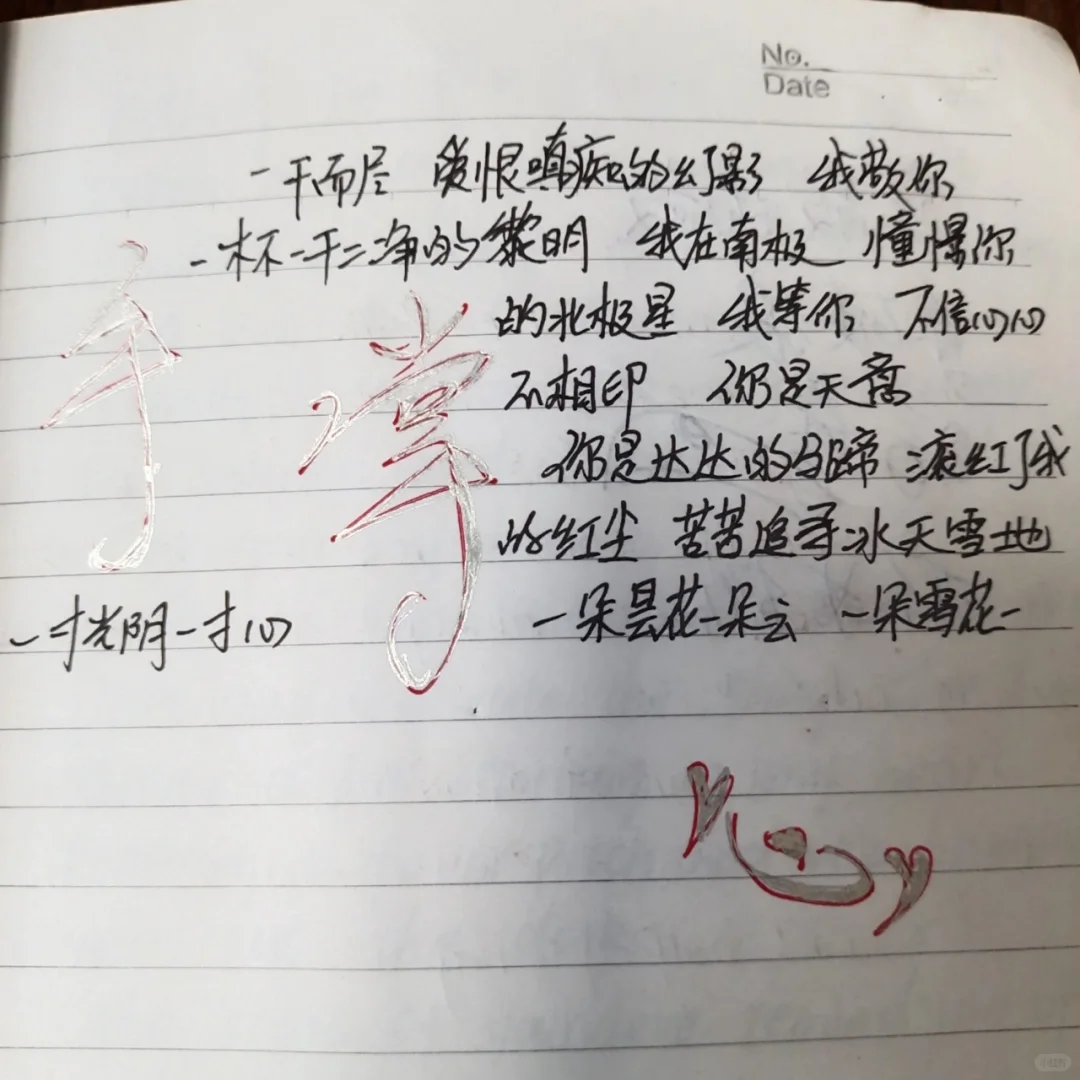 No.
Date
一干而尽 爱恨嗔痴的幻影 我敬你
一杯一干二净的黎明 我在南极 憧憬你
的北极星 我等你 不信心心
不相印 你是天意
你是达达的马蹄 滚红了我
的红尘 苦苦追寻冰天雪地
一寸光阴一寸心 一朵昙花一朵云 一朵雪花一
掌
心
小红书